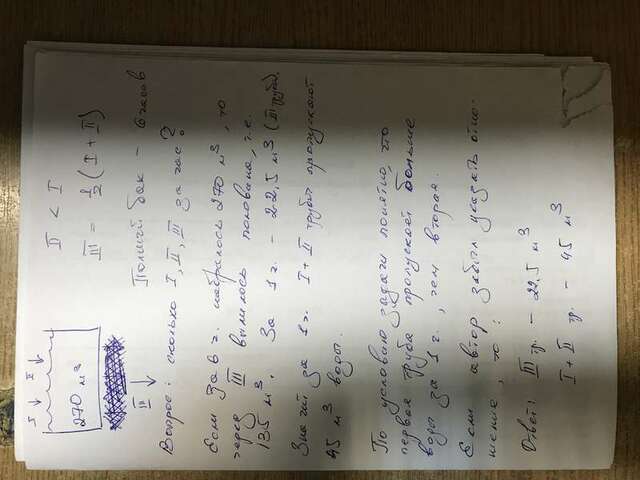 I II
270 м³
III
II < I
III = 1/2 (I + II)
Полный бак - 6 часов
Вопрос: сколько I, II, III за час?
Если за 6 ч. набралось 270 м³, то
через III вылилось половина, т.е.
135 м³. За 1 ч. - 22,5 м³ (III труба).
Значит за 1 ч. I + II трубы пропускают
45 м³ воды.
По условию задачи понятно, что
первая труба пропускает больше
воды за 1 ч., чем вторая.
Если автор забыл указать отно-
шение, то:
Ответ: III тр. - 22,5 м³
I + II тр. - 45 м³